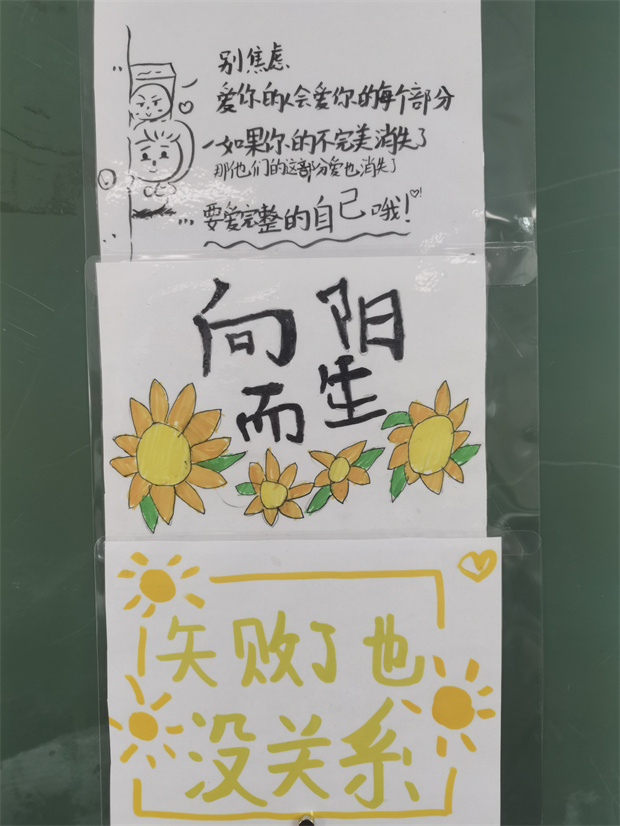 别焦虑
爱你的人会爱你的每个部分
如果你的不完美消失了
那他们的这部分爱也消失了
...要爱完整的自己哦!
向阳
而生
失败了也
没关系